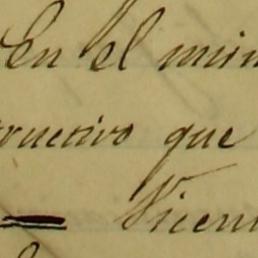 En el mun
ructivo que
Vicen